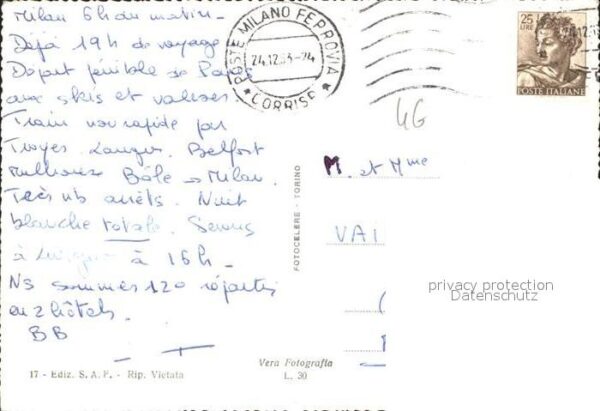 Milan 6h du matin -
Déjà 19h de voyage
Départ pénible de Paris
aux skis et valises.
Train non rapide par
Troyes Langres. Belfort
Mulhouse Bâle → Milan.
Très nb arrêts. Nuit
blanche totale. Serons
à à 16h -
Ns sommes 120 répartis
en 2 hôtels.
BB
17 - Ediz. S. A. F. - Rip. Vietata
POSTE MILANO FERROVIA
24.12.63-24
* CORRISP *
25
LIRE
POSTE ITALIANE
4G
FOTOCELERE - TORINO
M. et Mme
VAI
privacy protection
Datenschutz
Vera Fotografia
L. 30